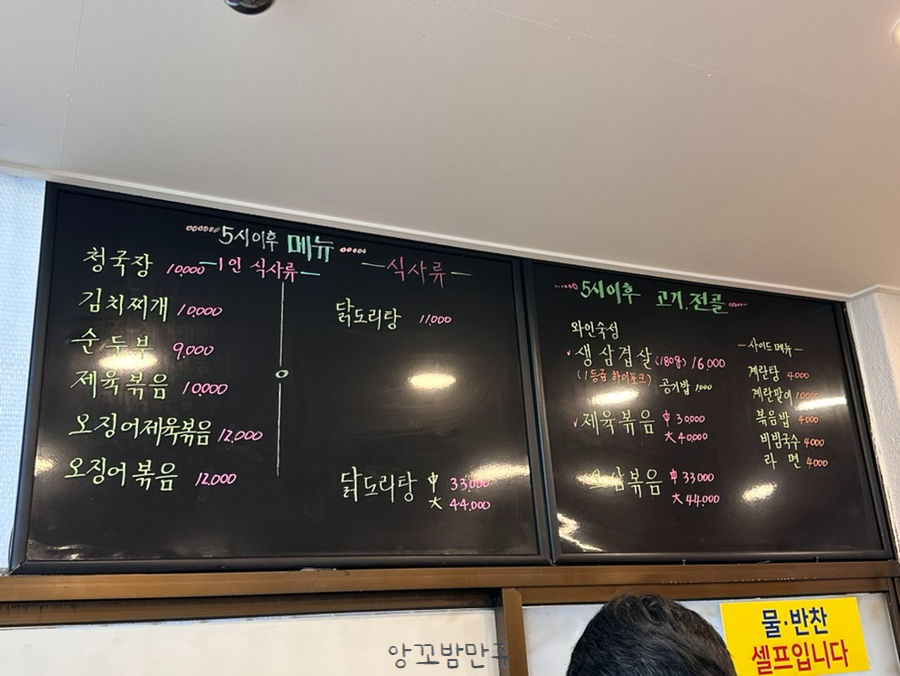 5시이후 메뉴
1인 식사류
청국장 10000
김치찌개 10,000
순두부 9,000
제육볶음 10,000
오징어제육볶음 12,000
오징어볶음 12,000
식사류
닭도리탕 11,000
닭도리탕 中 33,000
大 44,000
5시이후 고기.전골
와인숙성
생삼겹살 (180g) 16,000
(1등급 하이포크)
공기밥 1000
제육볶음 中 30,000
大 40,000
오삼볶음 中 33000
大 44,000
사이드 메뉴
계란탕 4000
계란말이
볶음밥 4000
비빔국수 4000
라면 4000
물·반찬
셀프입니다
앙꼬밤만쥬